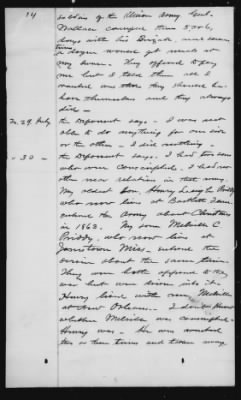 14 soldiers of the Union Army. Genl.
Wallace camped then 5 or 6
days with his Brigade, and some
times a dozen would get meals at
my house. They offered to pay
me but I told them all I
wanted was that they should be-
have themselves and they always
did —
To 29. Intg the Deponent says - I was not
able to do anything for one side
or the other - I did nothing -
- 30 - the Deponent says. I had two sons
who were Conscripted. I had no
other near relatives in that army.
My oldest son Henry Leigh Priddy
who now lives at Bartlett Tenn.
entered the Army about Christmas
in 1863. My son Melville C
Priddy, who now lives at
Jonestown Miss. entered the
service about the same time.
They were both opposed to the
war but were driven into it.
Henry lived with me, Melville
at New Orleans. I don't know
whether Melville was conscripted.
Henry was. He was arrested
two or three times and taken away